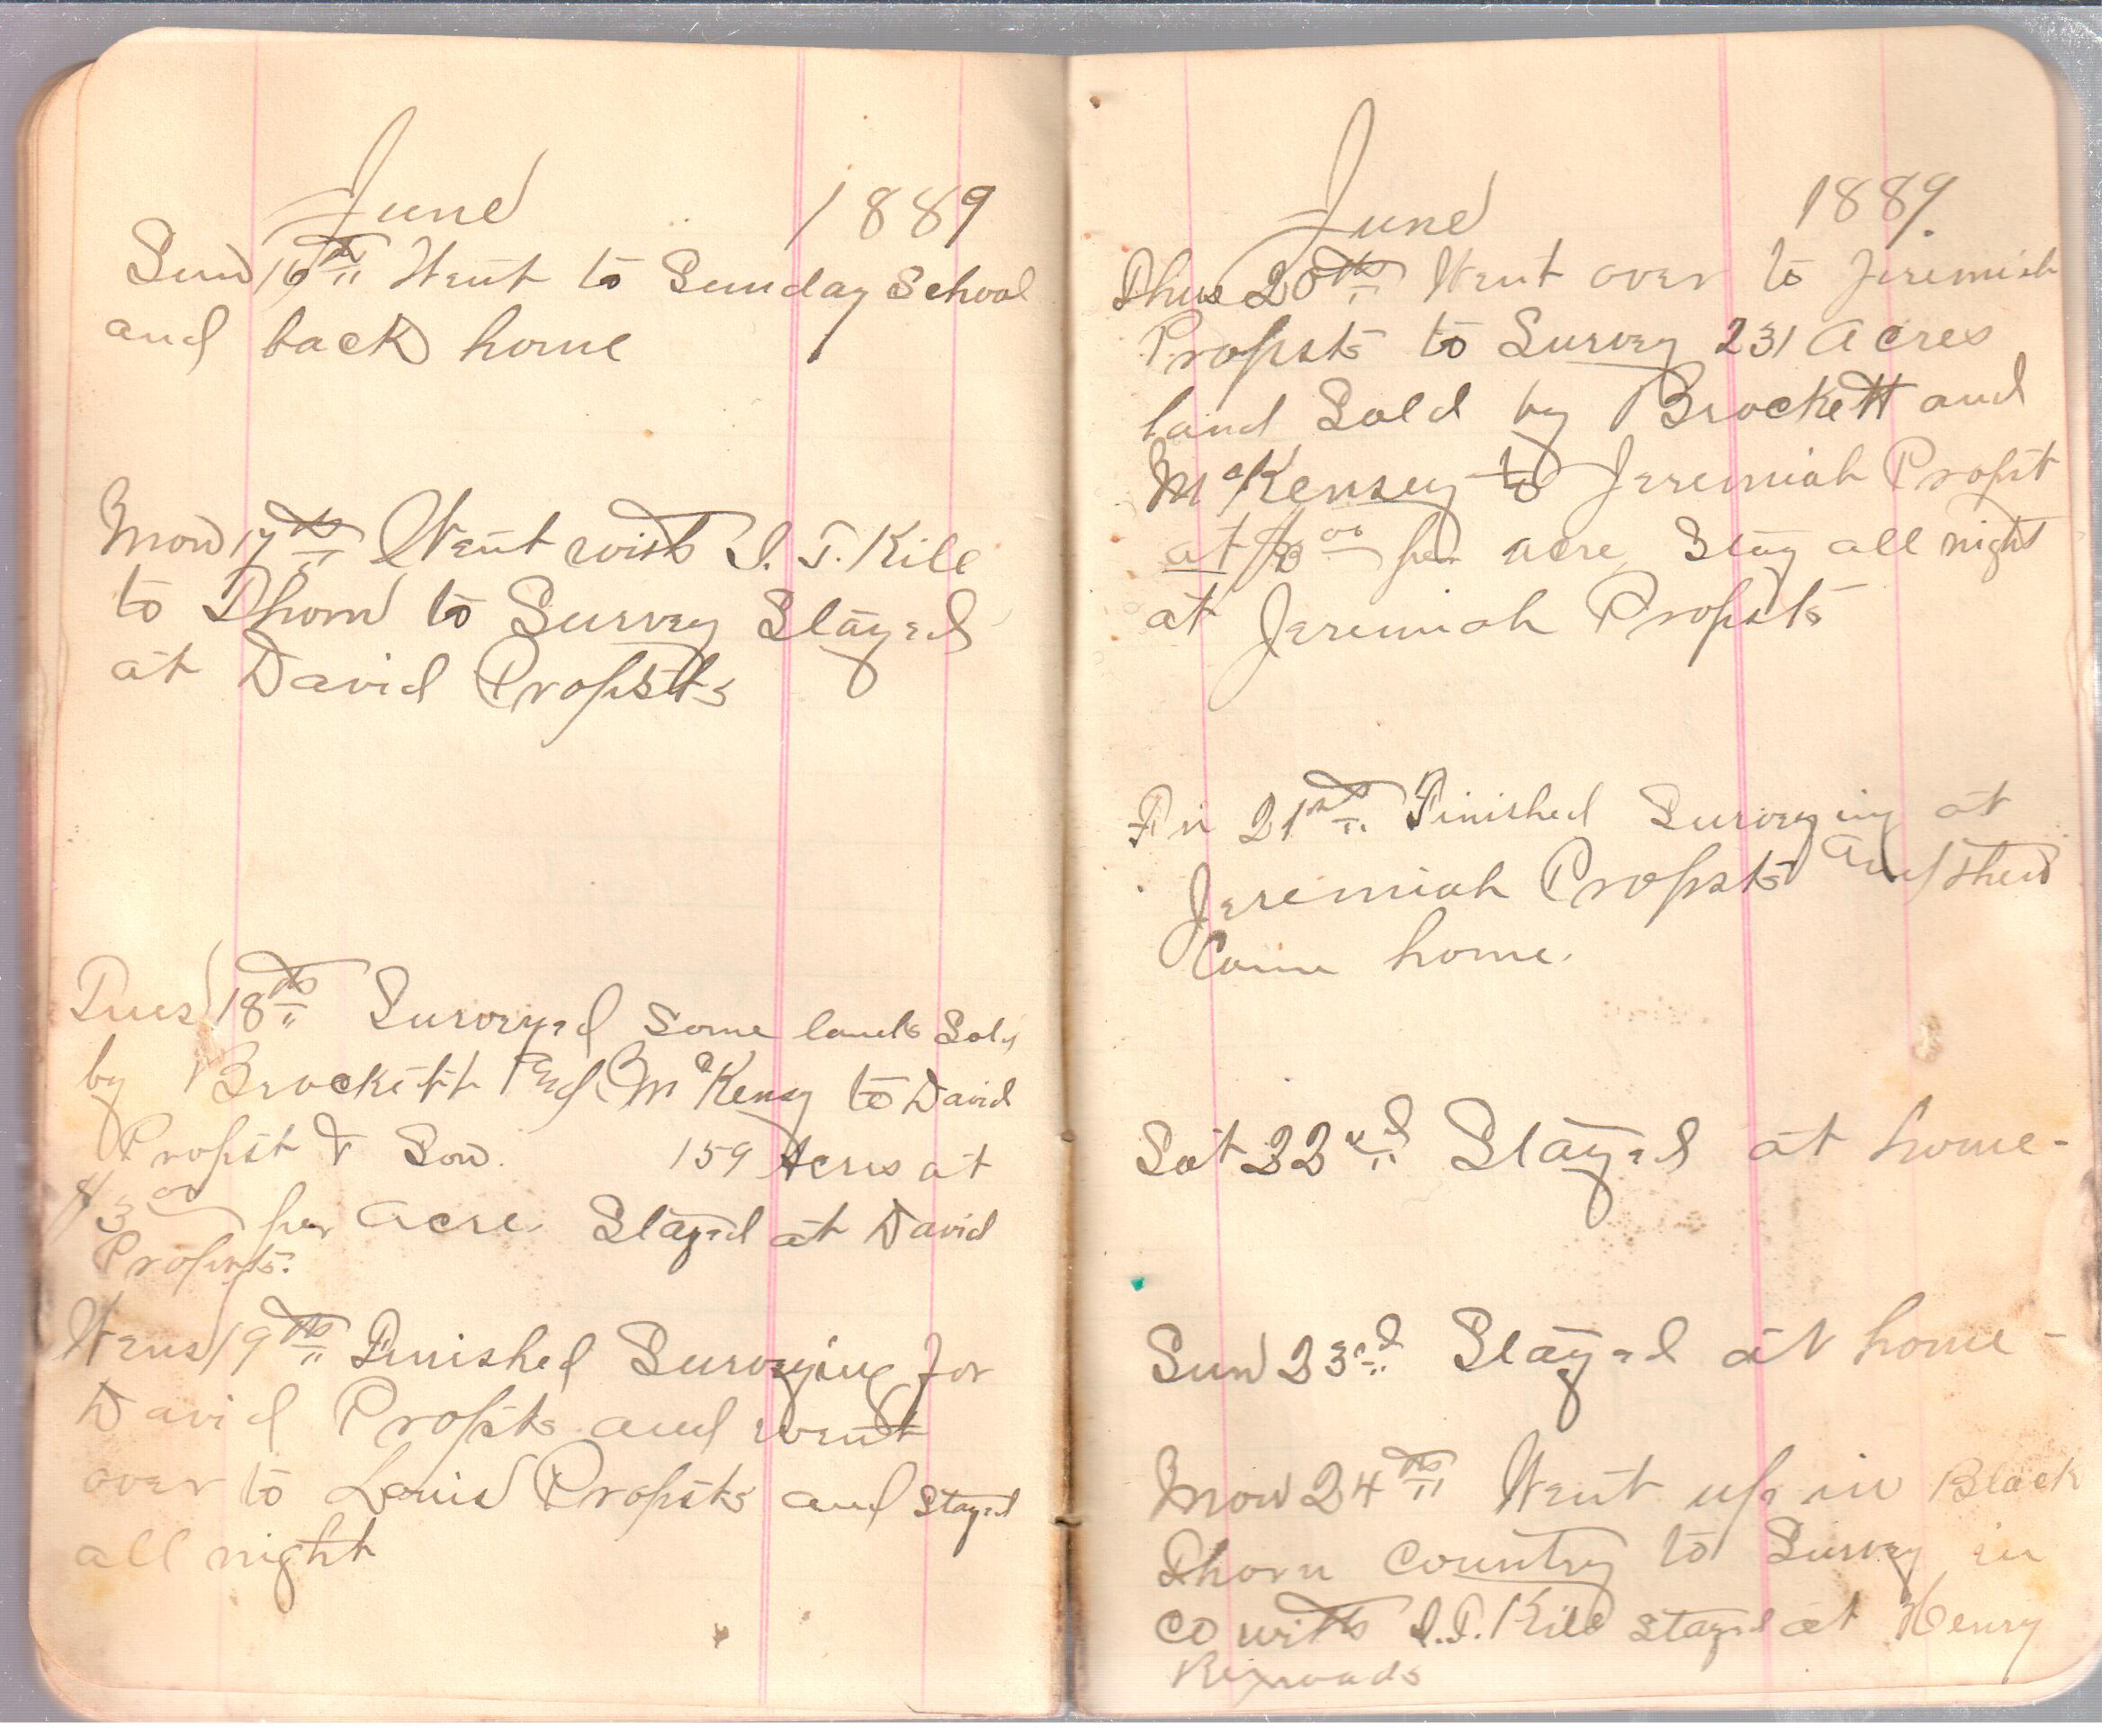 June 1889
Sun 16th Went to Sunday School
and back home
Mon 17th Went with I. T. Kile
to Thorn to Survey Stayed
at David Propsts
Tues 18th Surveyed some lands Sold
by Brockett and McKensy to David
Propst & Son. 159 Acres at
$3 00 per acre. Stayed at David
Propsts.
Wens 19th Finished Surveying for
David Propsts and went
over to Lewis Propsts and stayed
all night
June 1889.
Thus 20th Went over to Jeremiah
Propsts to Survey 231 acres
land Sold by Brockett and
McKensey to Jeremiah Propst
at $3 00 per acre Stay all night
at Jeremiah Propsts
Fri 21st Finished Surveying at
Jeremiah Propsts and then
Came home.
Sat 22nd Stayed at home-
Sun 23rd Stayed at home-
Mon 24th Went up in Black
Thorn Country to Survey in
co with I.T. Kile stayed at Henry
Rexroads